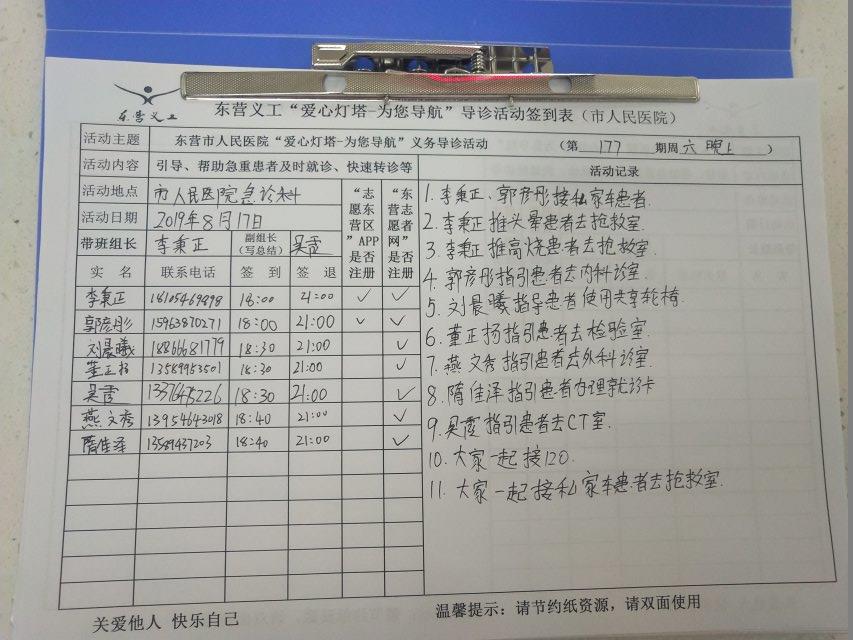 东营义工
东营义工“爱心灯塔-为您导航”导诊活动签到表（市人民医院）
活动主题 东营市人民医院“爱心灯塔-为您导航”义务导诊活动 （第 177 期周六 晚上）
活动内容 引导、帮助急重患者及时就诊、快速转诊等
活动地点 市人民医院急诊科
活动日期 2019年8月17日
带班组长 李秉正 副组长（写总结） 吴霞
“志愿东营区”APP是否注册
“东营志愿者网”是否注册
实 名 联系电话 签 到 签 退
李秉正 18105469898 18:00 21:00 ✓ ✓
郭彦彤 15963870271 18:00 21:00 ✓ ✓
刘晨曦 18866681779 18:30 21:00 ✓
董正扬 13589953501 18:30 21:00 ✓
吴霞 18:30 21:00 ✓
燕文秀 13954643018 18:40 21:00 ✓
隋佳泽 13589437203 18:40 21:00 ✓
活动记录
1. 李秉正、郭彦彤接私家车患者.
2. 李秉正推头晕患者去抢救室.
3. 李秉正推高烧患者去抢救室.
4. 郭彦彤指引患者去内科诊室.
5. 刘晨曦指导患者使用共享轮椅.
6. 董正扬指引患者去检验室.
7. 燕文秀指引患者去外科诊室.
8. 隋佳泽指引患者办理就诊卡
9. 吴霞指引患者去CT室.
10. 大家一起接120.
11. 大家一起接私家车患者去抢救室.
关爱他人 快乐自己
温馨提示：请节约纸资源，请双面使用